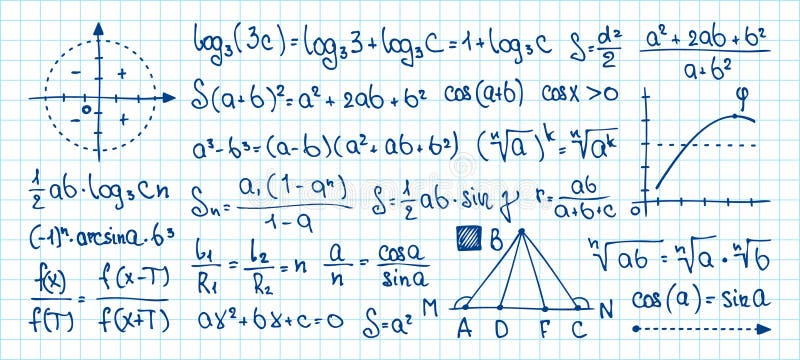 log₃(3c)=log₃3+log₃C=1+log₃C
S=d²/2
a²+2ab+b²/a+b²
- +
- +
o
S(a+b)²=a²+2ab+b²
cos(a+b)
cosx>0
φ
o
a³-b³=(a-b)(a²+ab+b²)
(ⁿ√a)ᵏ=ⁿ√aᵏ
1/2 ab·log₃Cn
Sn=a₁(1-qⁿ)/1-q
S=1/2 ab·sin γ
r=ab/a+b+c
(-1)ⁿ·arcsina·b³
b₁/R₁=b₂/R₂=n
a/n=cosa/sina
B
M A D F C N
ⁿ√ab=ⁿ√a·ⁿ√b
f(x)/f(T)=f(x-T)/f(x+T)
ax²+bx+c=0
S=a²
cos(a)=sina